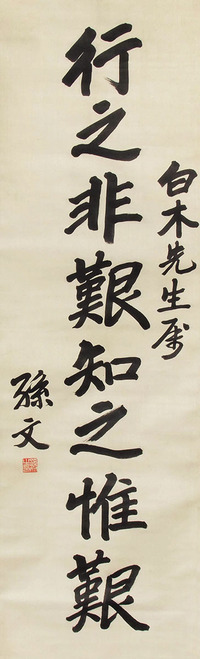 白木先生属
行之非艱知之惟艱
孫文